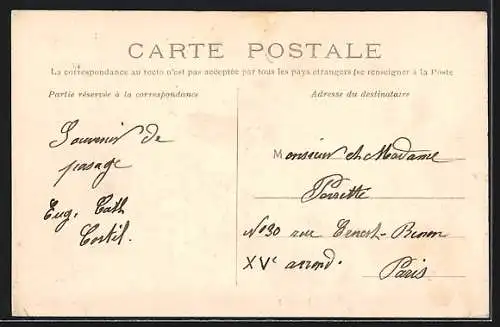 CARTE POSTALE
La correspondance au recto n'est pas acceptée par tous les pays étrangers (se renseigner à la Poste
Partie réservée à la correspondance
Adresse du destinataire
Souvenir de
passage
Eug. Cath
Costil.
Monsieur et Madame
Poirette
No 30 rue Ernest-Renan
XVe arrond.
Paris